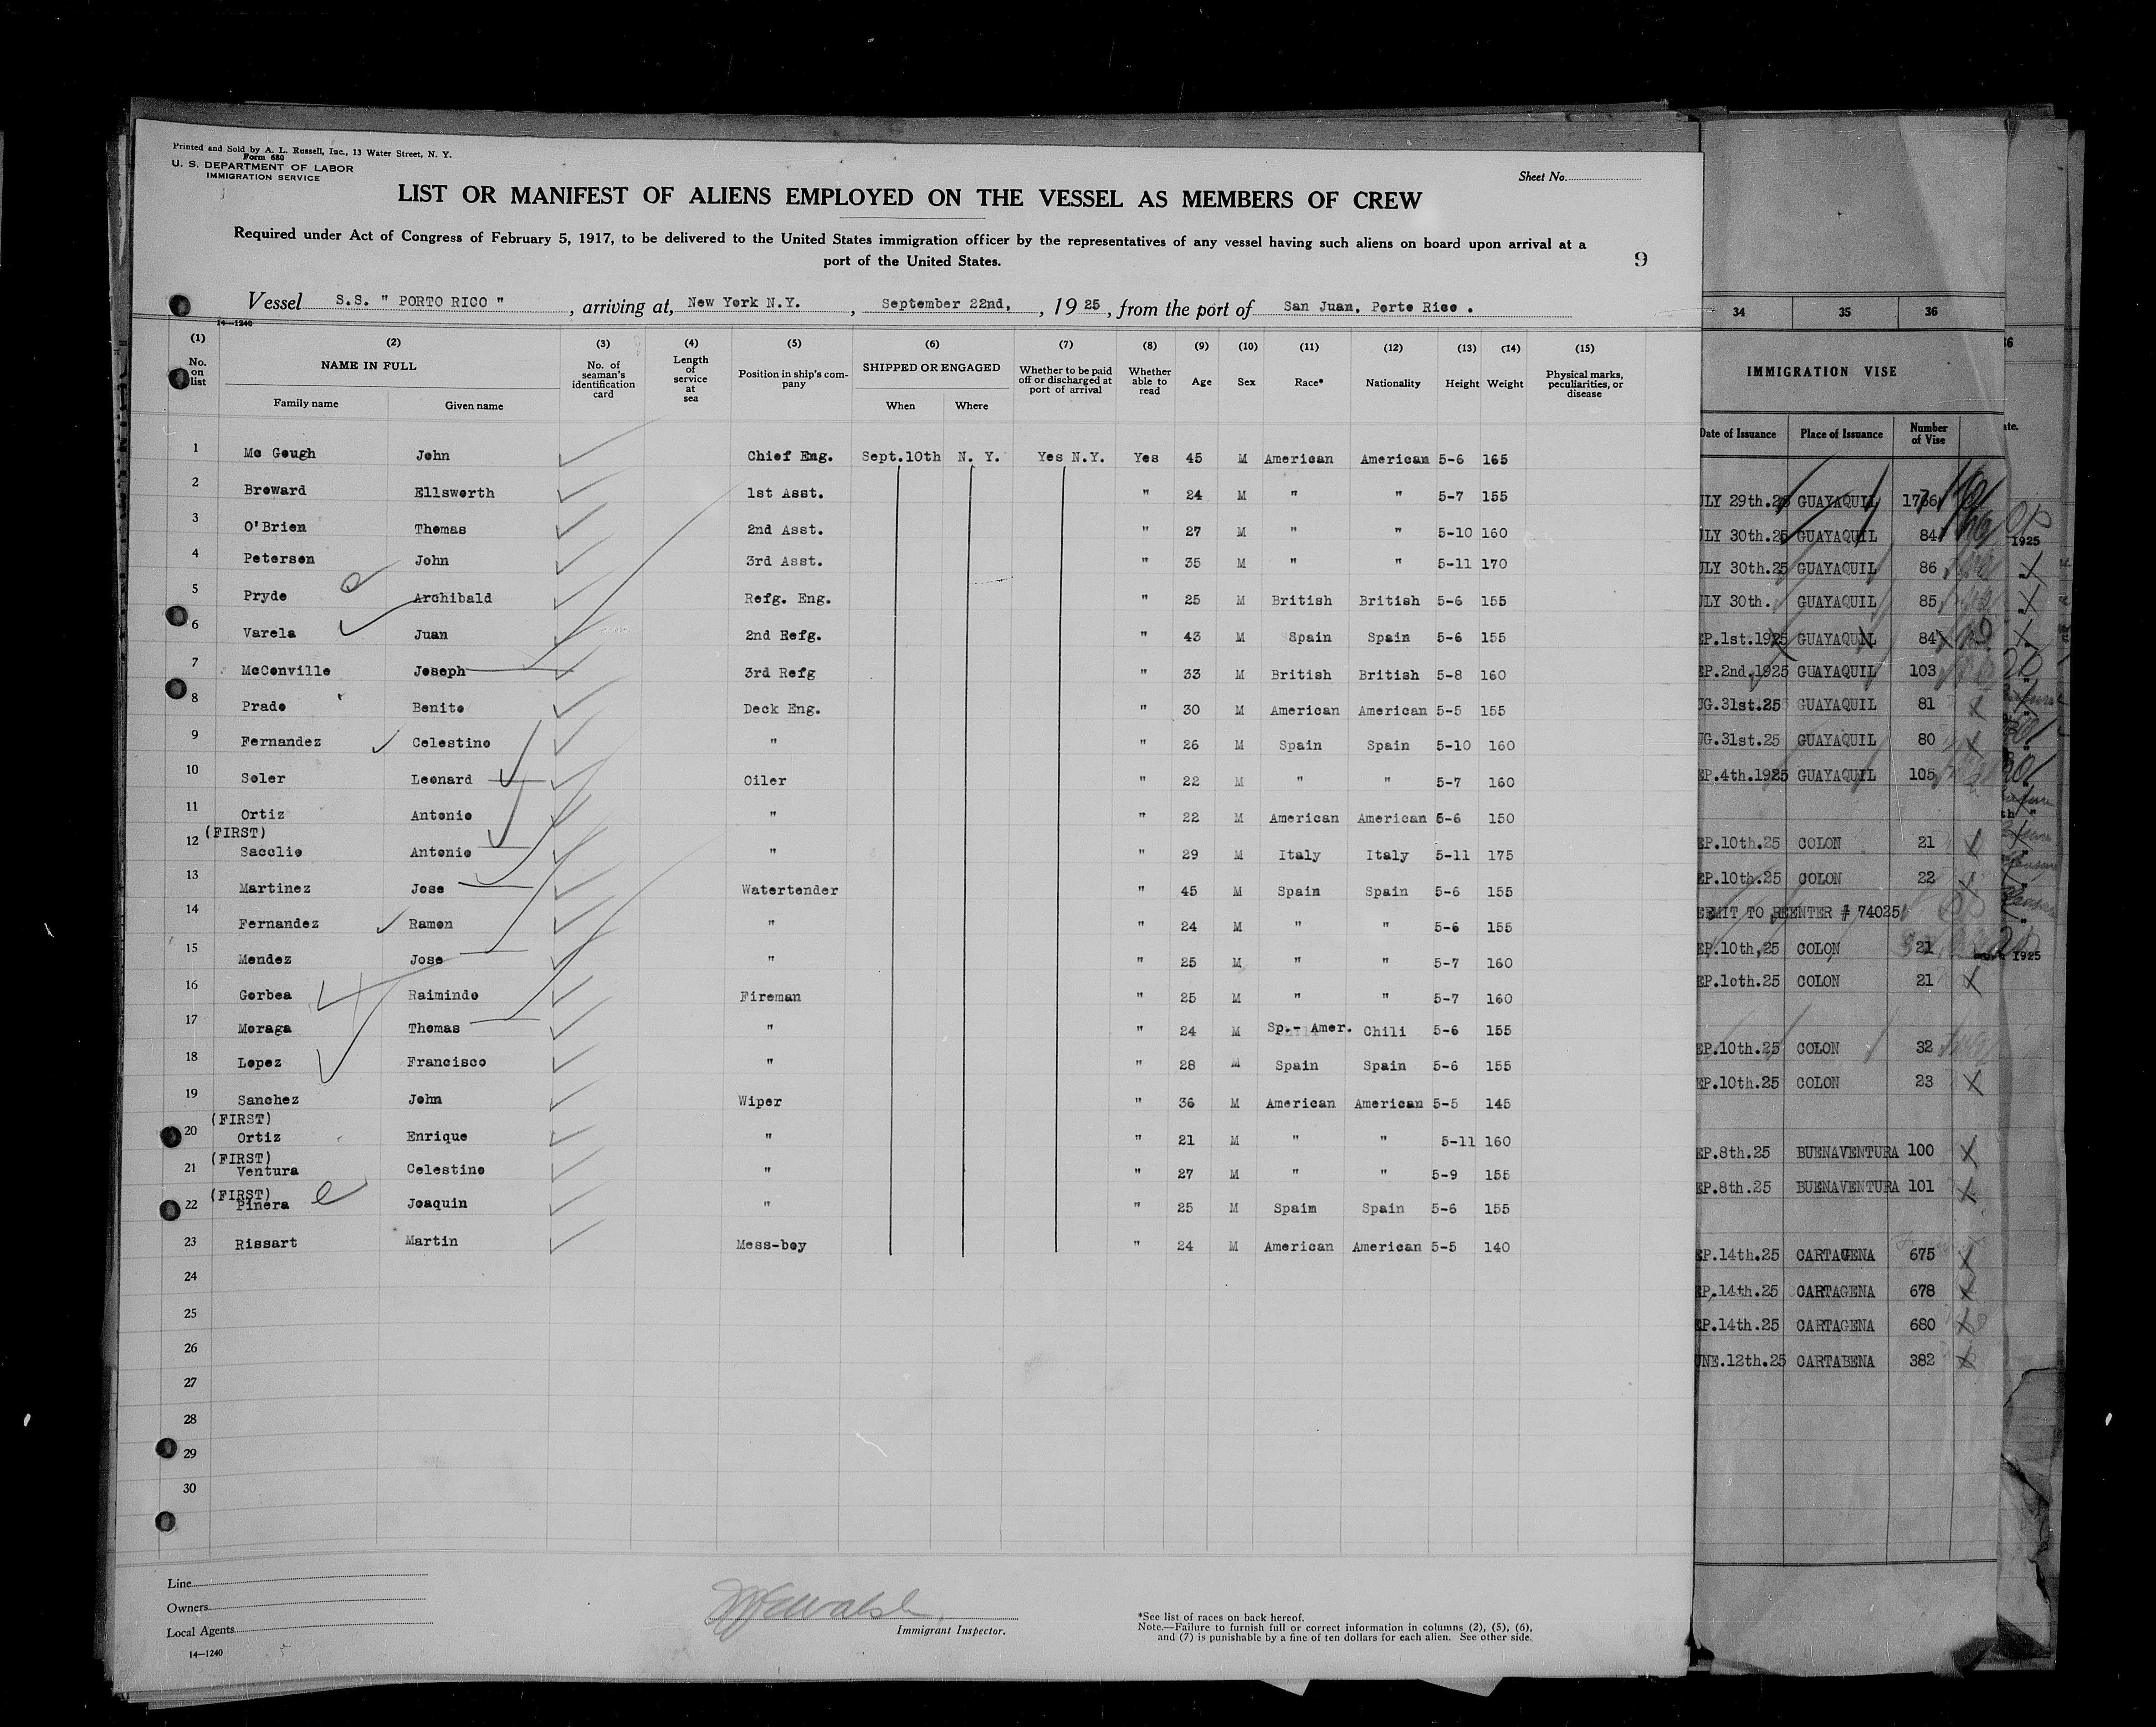 Printed and Sold by A. L. Russell, Inc., 13 Water Street, N. Y.
Form 680
U. S. DEPARTMENT OF LABOR
IMMIGRATION SERVICE
Sheet No.
LIST OR MANIFEST OF ALIENS EMPLOYED ON THE VESSEL AS MEMBERS OF CREW
Required under Act of Congress of February 5, 1917, to be delivered to the United States immigration officer by the representatives of any vessel having such aliens on board upon arrival at a
port of the United States.
9
Vessel S.S. " PORTO RICO " , arriving at, New York N.Y. , September 22nd, , 19 25 , from the port of San Juan, Porto Rico .
14—1240
(1) (2) (3) (4) (5) (6) (7) (8) (9) (10) (11) (12) (13) (14) (15)
No. on list NAME IN FULL Family name Given name No. of seaman's identification card Length of service at sea Position in ship's company SHIPPED OR ENGAGED When Where Whether to be paid off or discharged at port of arrival Whether able to read Age Sex Race* Nationality Height Weight Physical marks, peculiarities, or disease
1 Mc Gough John Chief Eng. Sept.10th N. Y. Yes N.Y. Yes 45 M American American 5-6 165
2 Broward Ellsworth 1st Asst. " 24 M " " 5-7 155
3 O'Brien Thomas 2nd Asst. " 27 M " " 5-10 160
4 Peterson John 3rd Asst. " 35 M " " 5-11 170
5 Pryde Archibald Refg. Eng. " 25 M British British 5-6 155
6 Varela Juan 2nd Refg. " 43 M Spain Spain 5-6 155
7 McConville Joseph 3rd Refg " 33 M British British 5-8 160
8 Prado Benito Deck Eng. " 30 M American American 5-5 155
9 Fernandez Celestino " " 26 M Spain Spain 5-10 160
10 Soler Leonard Oiler " 22 M " " 5-7 160
11 Ortiz Antonio " " 22 M American American 5-6 150
(FIRST)
12 Sacclio Antonio " " 29 M Italy Italy 5-11 175
13 Martinez Jose Watertender " 45 M Spain Spain 5-6 155
14 Fernandez Ramon " " 24 M " " 5-6 155
15 Mendez Jose " " 25 M " " 5-7 160
16 Gorbea Raimindo Fireman " 25 M " " 5-7 160
17 Moraga Thomas " " 24 M Sp.- Amer. Chili 5-6 155
18 Lopez Francisco " " 28 M Spain Spain 5-6 155
19 Sanchez John Wiper " 36 M American American 5-5 145
(FIRST)
20 Ortiz Enrique " " 21 M " " 5-11 160
(FIRST)
21 Ventura Celestino " " 27 M " " 5-9 155
(FIRST)
22 Pinera Joaquin " " 25 M Spain Spain 5-6 155
23 Rissart Martin Mess-boy " 24 M American American 5-5 140
24
25
26
27
28
29
30
Line
Owners
Local Agents
14—1240
Walsh
Immigrant Inspector.
*See list of races on back hereof.
Note.—Failure to furnish full or correct information in columns (2), (5), (6),
and (7) is punishable by a fine of ten dollars for each alien. See other side.
34 35 36
IMMIGRATION VISE
Date of Issuance Place of Issuance Number of Vise
LY 29th.25 GUAYAQUIL 1766
LY 30th.25 GUAYAQUIL 84
LY 30th.25 GUAYAQUIL 86
LY 30th. GUAYAQUIL 85
EP.1st.1925 GUAYAQUIL 84
EP.2nd.1925 GUAYAQUIL 103
UG.31st.25 GUAYAQUIL 81
UG.31st.25 GUAYAQUIL 80
EP.4th.1925 GUAYAQUIL 105
EP.10th.25 COLON 21
EP.10th.25 COLON 22
ERMIT TO REENTER # 74025
EP.10th,25 COLON 21
EP.10th.25 COLON 21
EP.10th.25 COLON 32
EP.10th.25 COLON 23
EP.8th.25 BUENAVENTURA 100
EP.8th.25 BUENAVENTURA 101
EP.14th.25 CARTAGENA 675
EP.14th.25 CARTAGENA 678
EP.14th.25 CARTAGENA 680
UNE.12th.25 CARTABENA 382
1925
1925